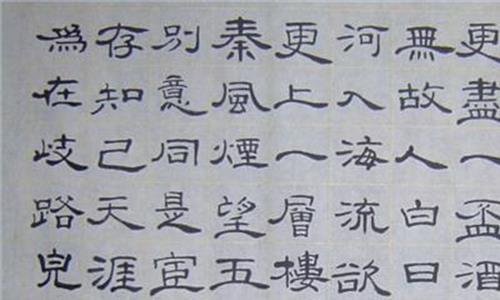 更盡一盃酒
無故人白日
河入海流欲
更上一層樓
秦風煙望五
別意同是宦
存知己天涯
爲在歧路兒